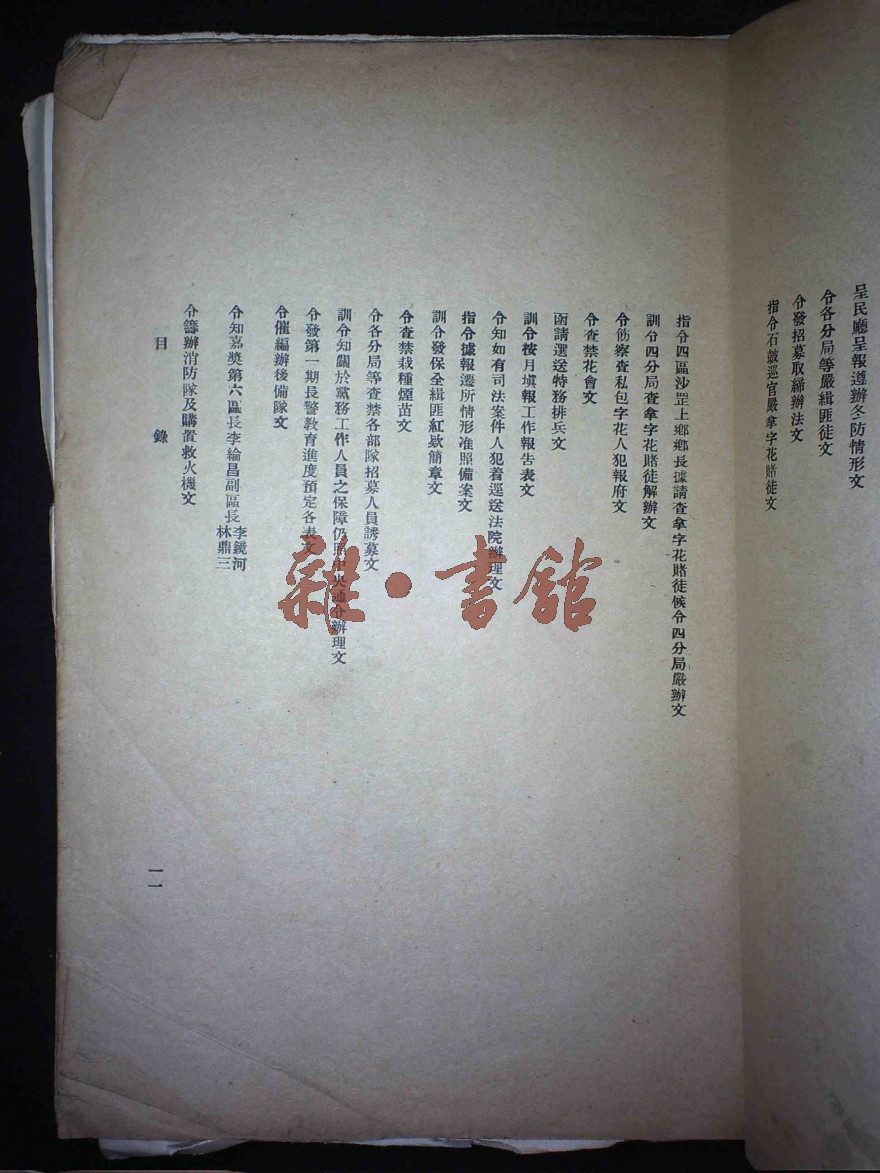 呈民廳呈報遵辦冬防情形文
令各分局等嚴緝匪徒文
令發招募取締辦法文
指令石鼓巡官嚴拿字花賭徒文
指令四區沙罡上鄉鄉長據請查拿字花賭徒候令四分局嚴辦文
訓令四分局查拿字花賭徒解辦文
令飭察查私包字花人犯報府文
令查禁花會文
函請選送特務排兵文
訓令按月填報工作報告表文
令知如有司法案件人犯着逕送法院辦理文
指令據報遷所情形准照備案文
訓令發保全緝匪紅欵簡章文
令查禁栽種煙苗文
令各分局等查禁各部隊招募人員誘募文
訓令知關於黨務工作人員之保障仍照中央通令辦理文
令發第一期長警教育進度預定各表文
令催編辦後備隊文
令知嘉獎第六區長李綸昌副區長李鏡河林鼎三
令籌辦消防隊及購置救火機文
目錄
一一
雜·書館